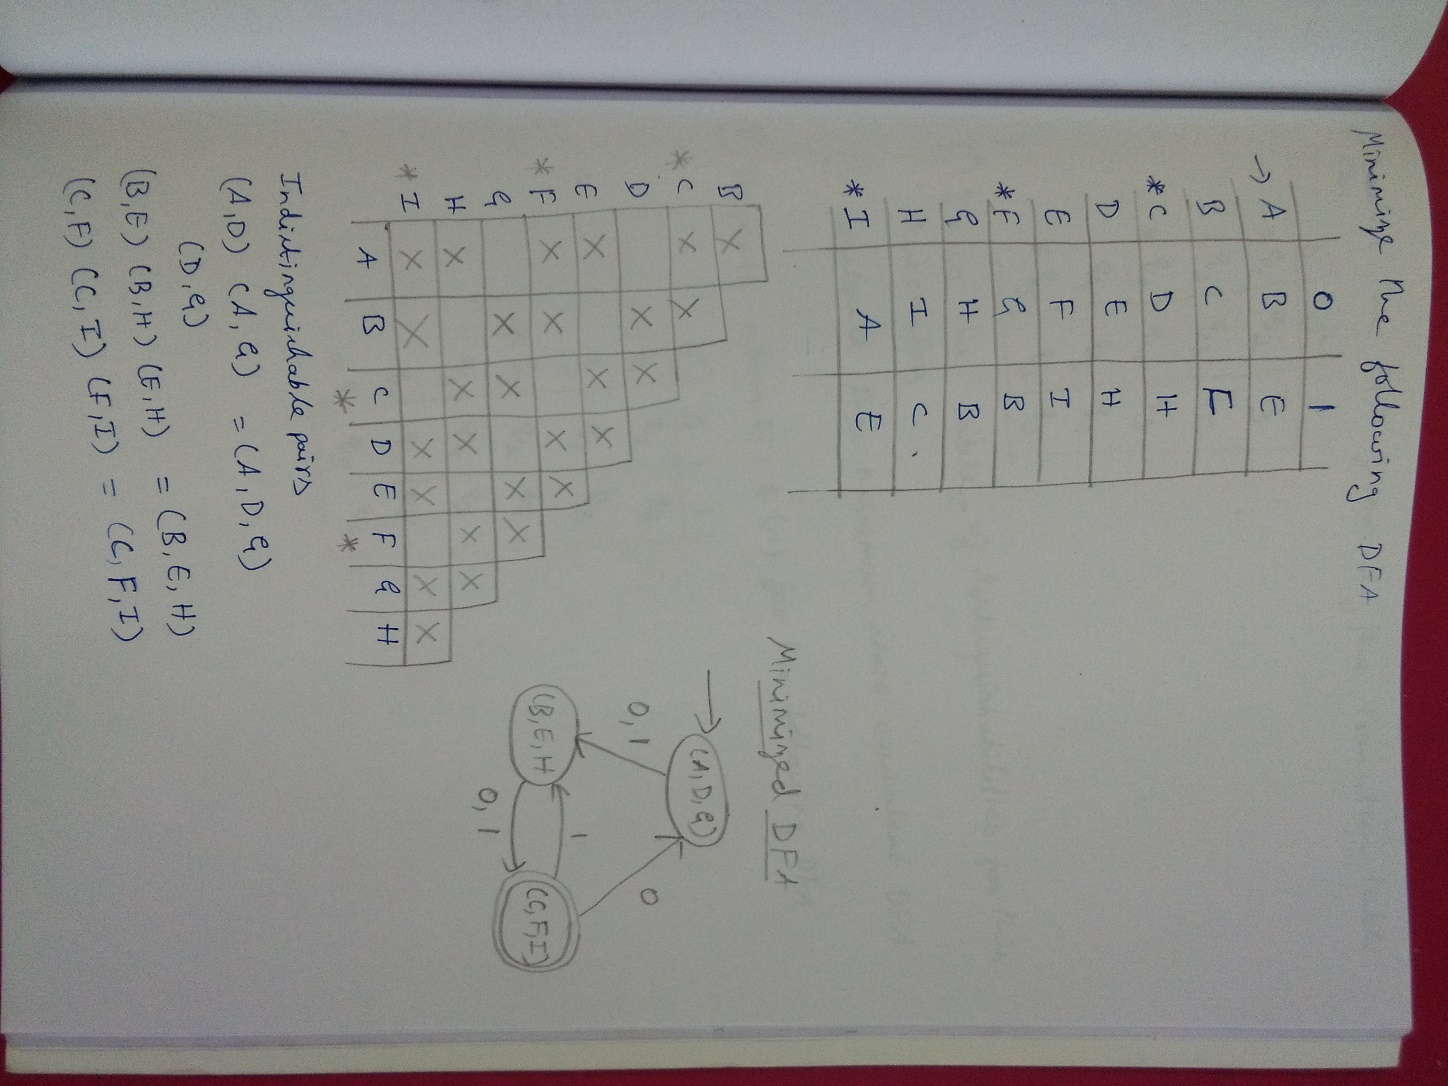 Minimize the following DFA
0 1
→ A B E
B C F
*C D H
D E H
E F I
*F G B
G H B
H I C
*I A E
B X
*C X X
D X X
E X X X
*F X X X X
G X X X X
H X X X X X
*I X X X X X X
A B C D E F G H
* *
Indistinguishable pairs
(A,D) (A,G) = (A,D,G)
(D,G)
(B,E) (B,H) (E,H) = (B,E,H)
(C,F) (C,I) (F,I) = (C,F,I)
Minimized DFA
(A,D,G)
0,1
0
(B,E,H
1
(C,F,I)
0,1